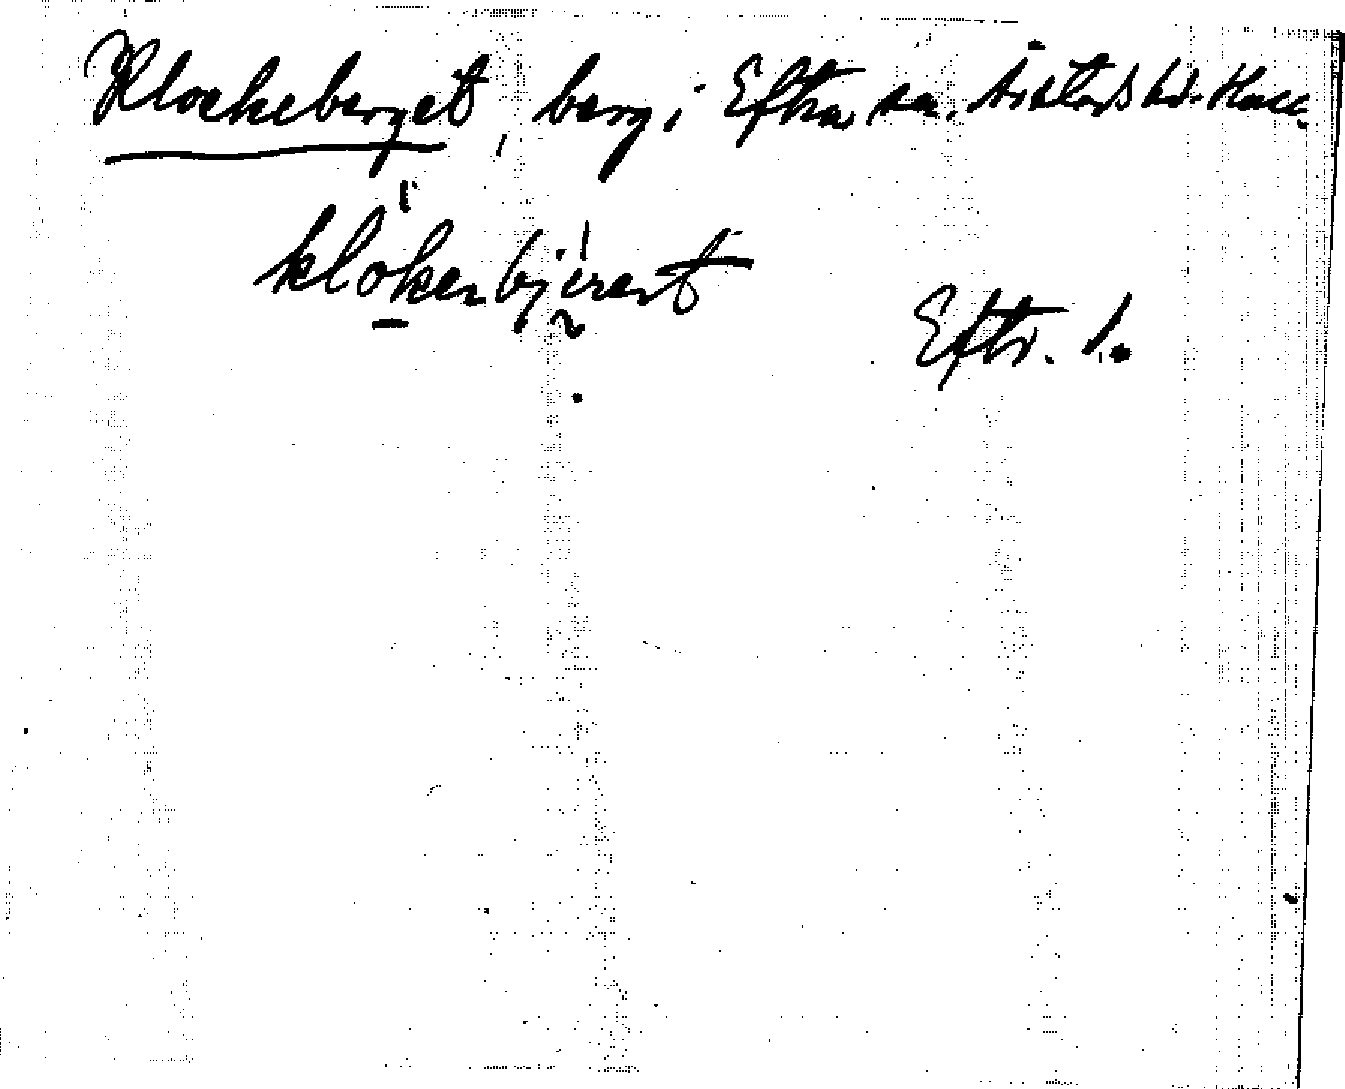 Klockeberget, berg i Eftra sn. Årstads hd. Hall.
klokenbjæret
Eftr. 1.